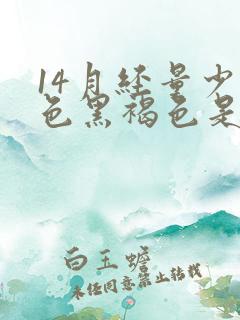 14月经量少
色黑褐色是
白玉蟾
未经同意禁止转载